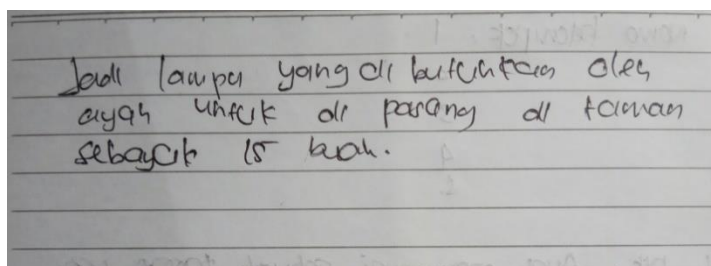 Jadi lampu yang di butuhkan oleh
ayah untuk di pasang di taman
sebayak 15 buah.